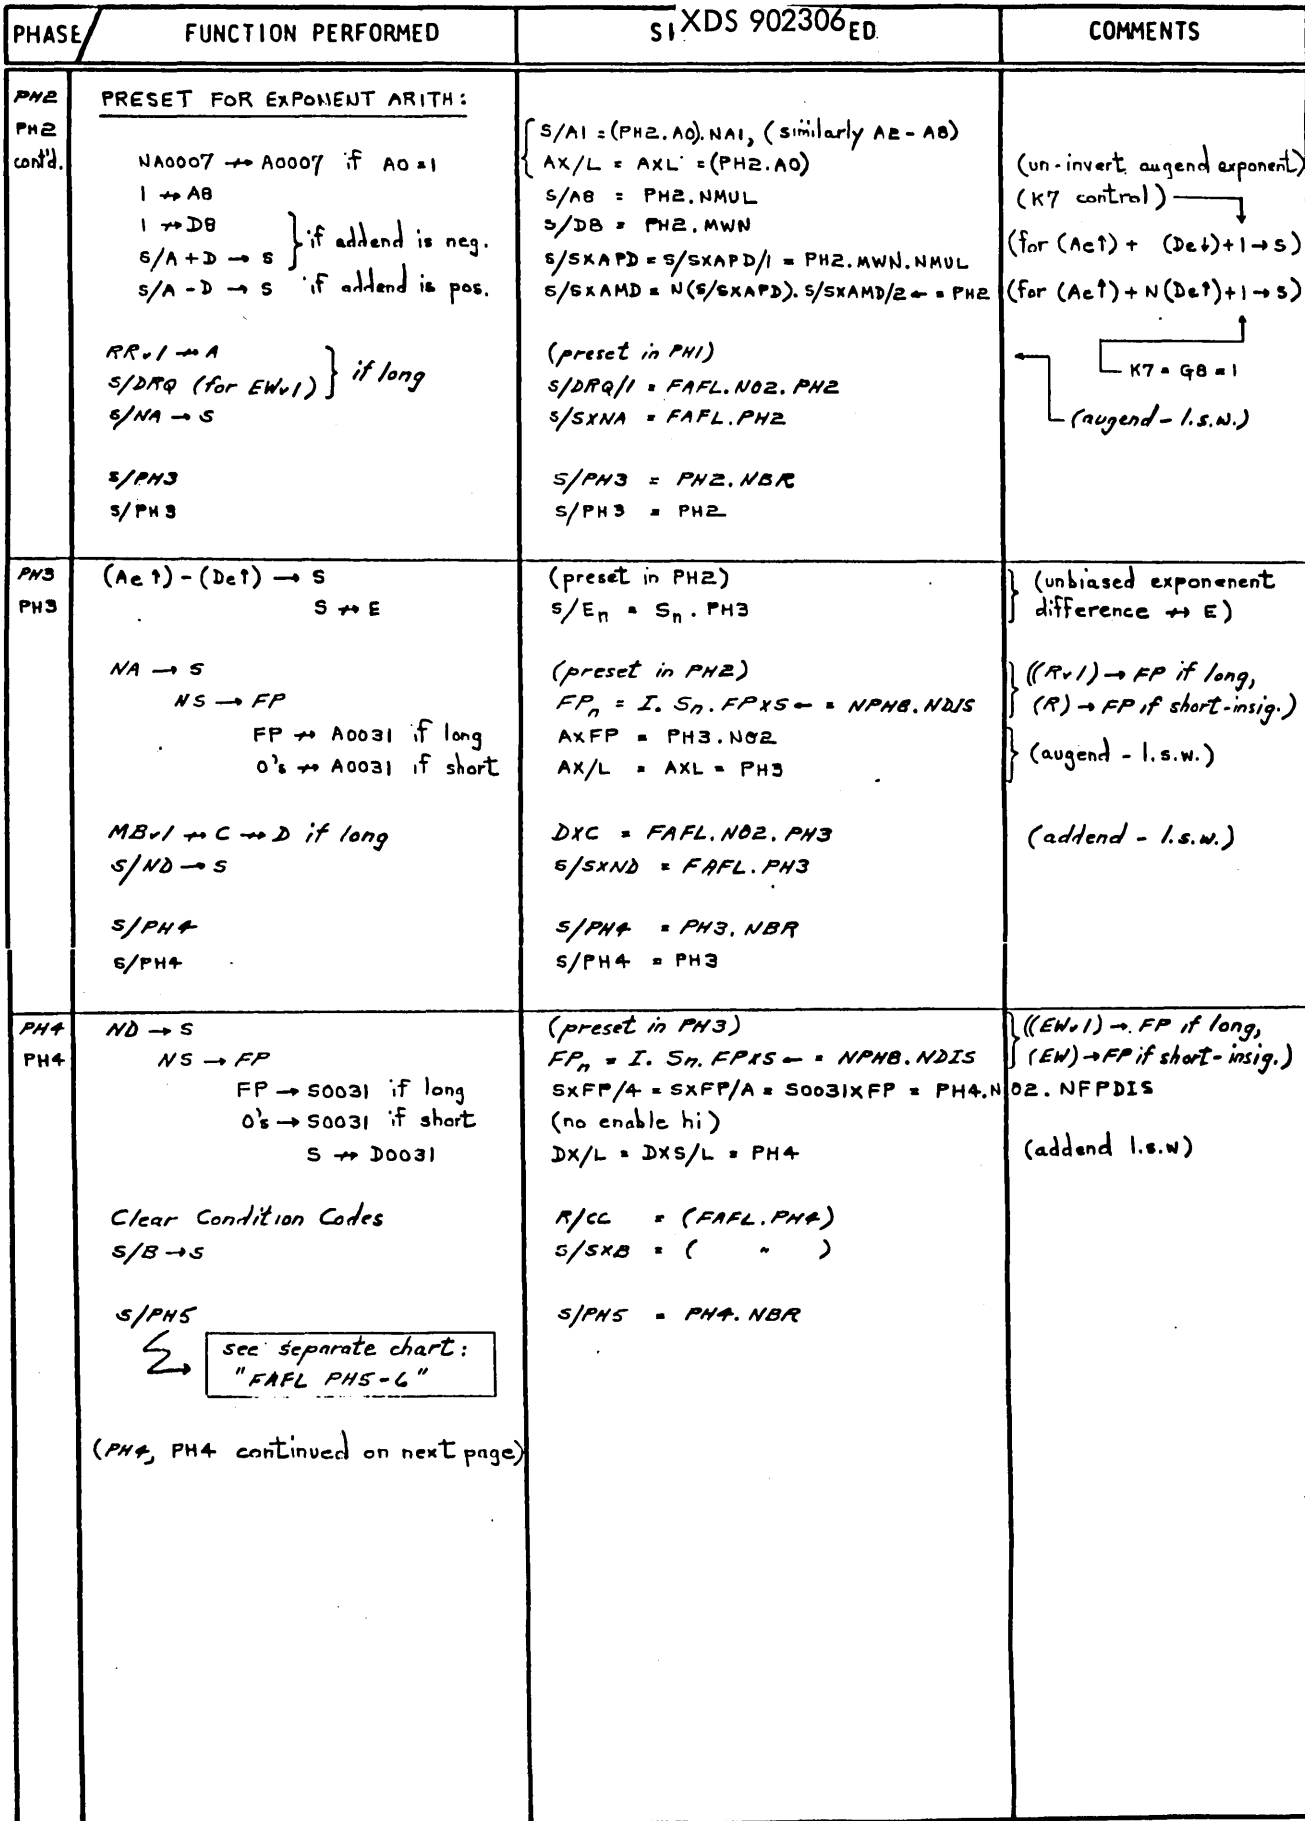 XDS 902306
PHASE / FUNCTION PERFORMED SI ED COMMENTS
PH2 PRESET FOR EXPONENT ARITH:
PH2 S/A1 = (PH2.A0).NA1, (similarly A2 - A8)
cont'd. NA0007 ↛ A0007 if A0=1 AX/L = AXL = (PH2.A0) (un-invert augend exponent)
1 ↛ A8 S/A8 = PH2.NMUL (K7 control)
1 ↛ D8 S/D8 = PH2.MWN
S/A+D → S } if addend is neg. S/SXAPD = S/SXAPD/1 = PH2.MWN.NMUL (for (Ae↑) + (De↓)+1→S)
S/A-D → S if addend is pos. S/SXAMD = N(S/SXAPD). S/SXAMD/2 ← = PH2 (for (Ae↑) + N(De↑)+1→S)
RRv1 ↛ A (preset in PH1) K7 = G8 = 1
S/DRQ (for EWv1) } if long S/DRQ/1 = FAFL.NO2.PH2
S/NA → S S/SXNA = FAFL.PH2 (augend - l.s.w.)
S/PH3 S/PH3 = PH2.NBR
S/PH3 S/PH3 = PH2
PH3 (Ae↑) - (De↑) → S (preset in PH2) } (unbiased exponenent
PH3 S ↛ E S/En = Sn . PH3 difference ↛ E)
NA → S (preset in PH2) } ((Rv1) → FP if long,
NS → FP FPn = I. Sn. FPXS ← = NPH8.NDIS (R) → FP if short-insig.)
FP ↛ A0031 if long AXFP = PH3.NO2 } (augend - l.s.w.)
0's ↛ A0031 if short AX/L = AXL = PH3
MBv1 ↛ C ↛ D if long DXC = FAFL.NO2.PH3 (addend - l.s.w.)
S/ND → S S/SXND = FAFL.PH3
S/PH4 S/PH4 = PH3.NBR
S/PH4 S/PH4 = PH3
PH4 ND → S (preset in PH3) } ((EWv1) → FP if long,
PH4 NS → FP FPn = I. Sn. FPXS ← = NPH8.NDIS (EW) → FP if short-insig.)
FP → S0031 if long SXFP/4 = SXFP/A = S0031XFP = PH4.NO2.NFPDIS
0's → S0031 if short (no enable hi)
S ↛ D0031 DX/L = DXS/L = PH4 (addend l.s.w)
Clear Condition Codes R/CC = (FAFL.PH4)
S/B → S S/SXB = ( " )
S/PH5 S/PH5 = PH4.NBR
see separate chart:
"FAFL PH5-6"
(PH4, PH4 continued on next page)